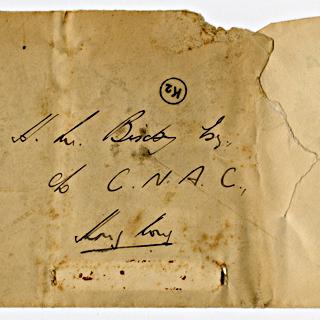 K2
H. M. Bixby Esq.,
c/o C. N. A. C.,
Hong Kong